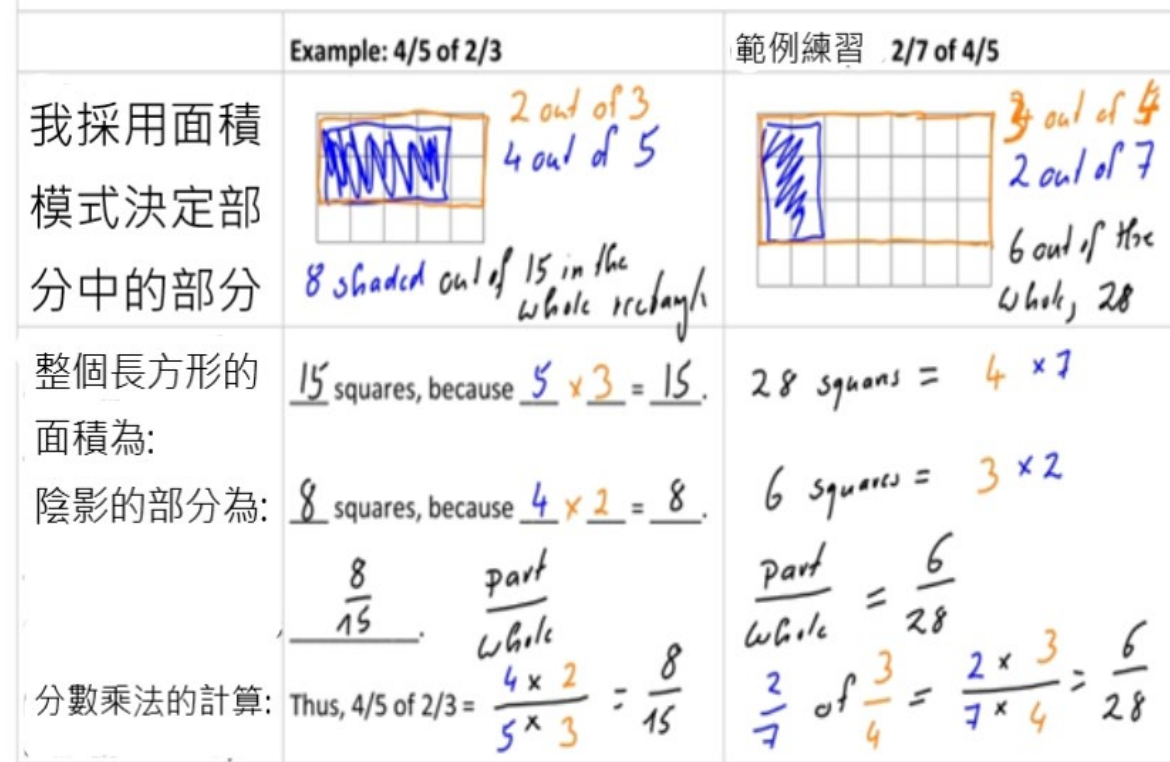 Example: 4/5 of 2/3
範例練習 2/7 of 4/5
我採用面積
模式決定部
分中的部分
2 out of 3
4 out of 5
8 shaded out of 15 in the
whole rectangle
out of
2 out of 7
6 out of the
whole, 28
整個長方形的
面積為:
15 squares, because 5 × 3 = 15.
28 squares = 4 × 7
陰影的部分為:
8 squares, because 4 × 2 = 8.
6 squares = 3 × 2
8/15.
Part/Whole
Part/Whole = 6/28
分數乘法的計算:
Thus, 4/5 of 2/3 = 4 × 2 / 5 × 3 = 8/15
2/7 of 3/4 = 2 × 3 / 7 × 4 = 6/28